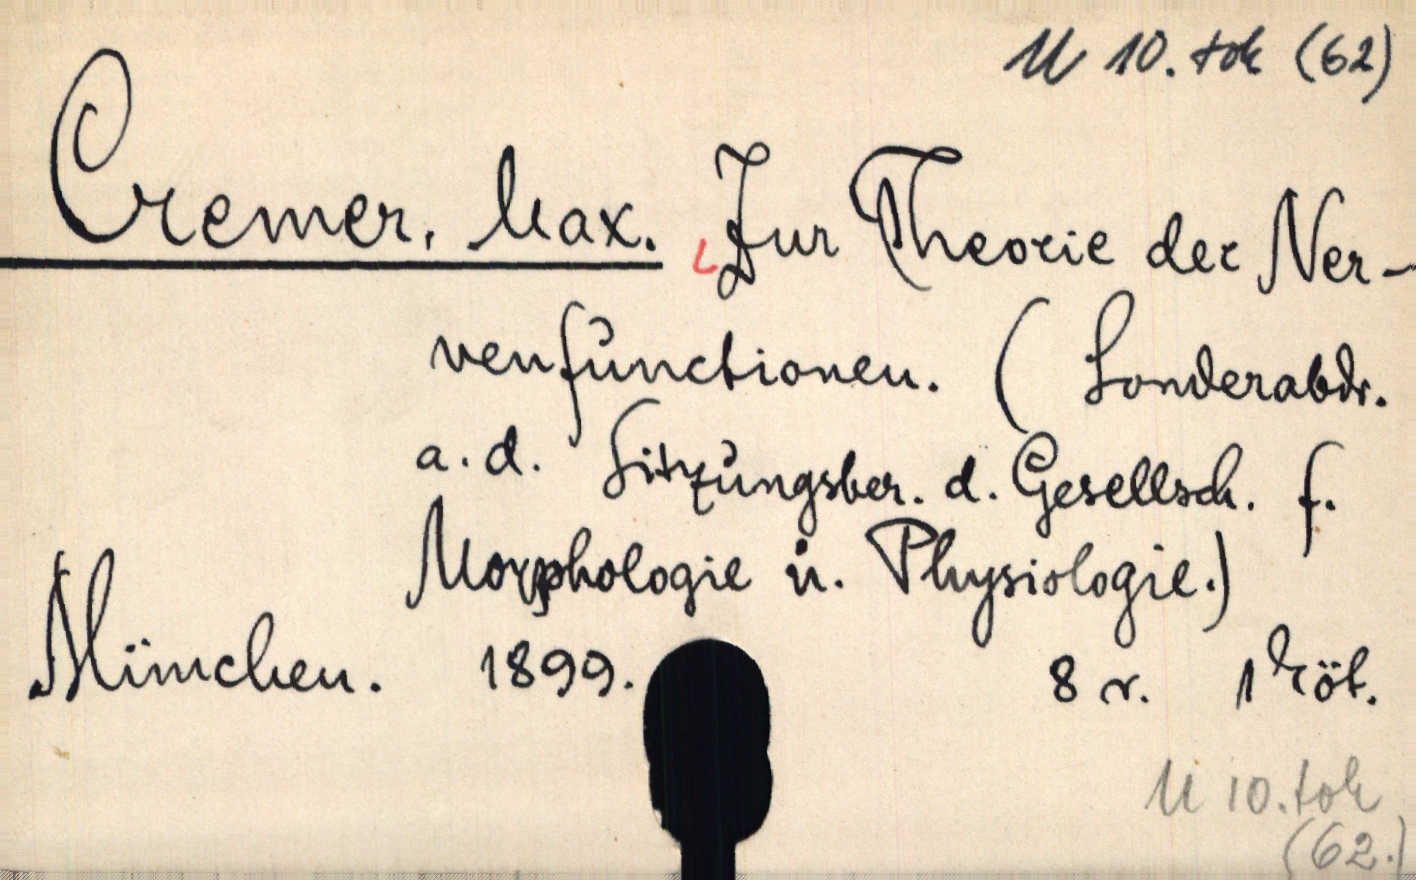 U 10. tok (62)
Cremer, Max. Zur Theorie der Ner-
venfunctionen. (Sonderabdr.
a. d. Sitzungsber. d. Gesellsch. f.
Morphologie u. Physiologie.)
München. 1899. 8 r. 1 köt.
U 10. tok
(62.)